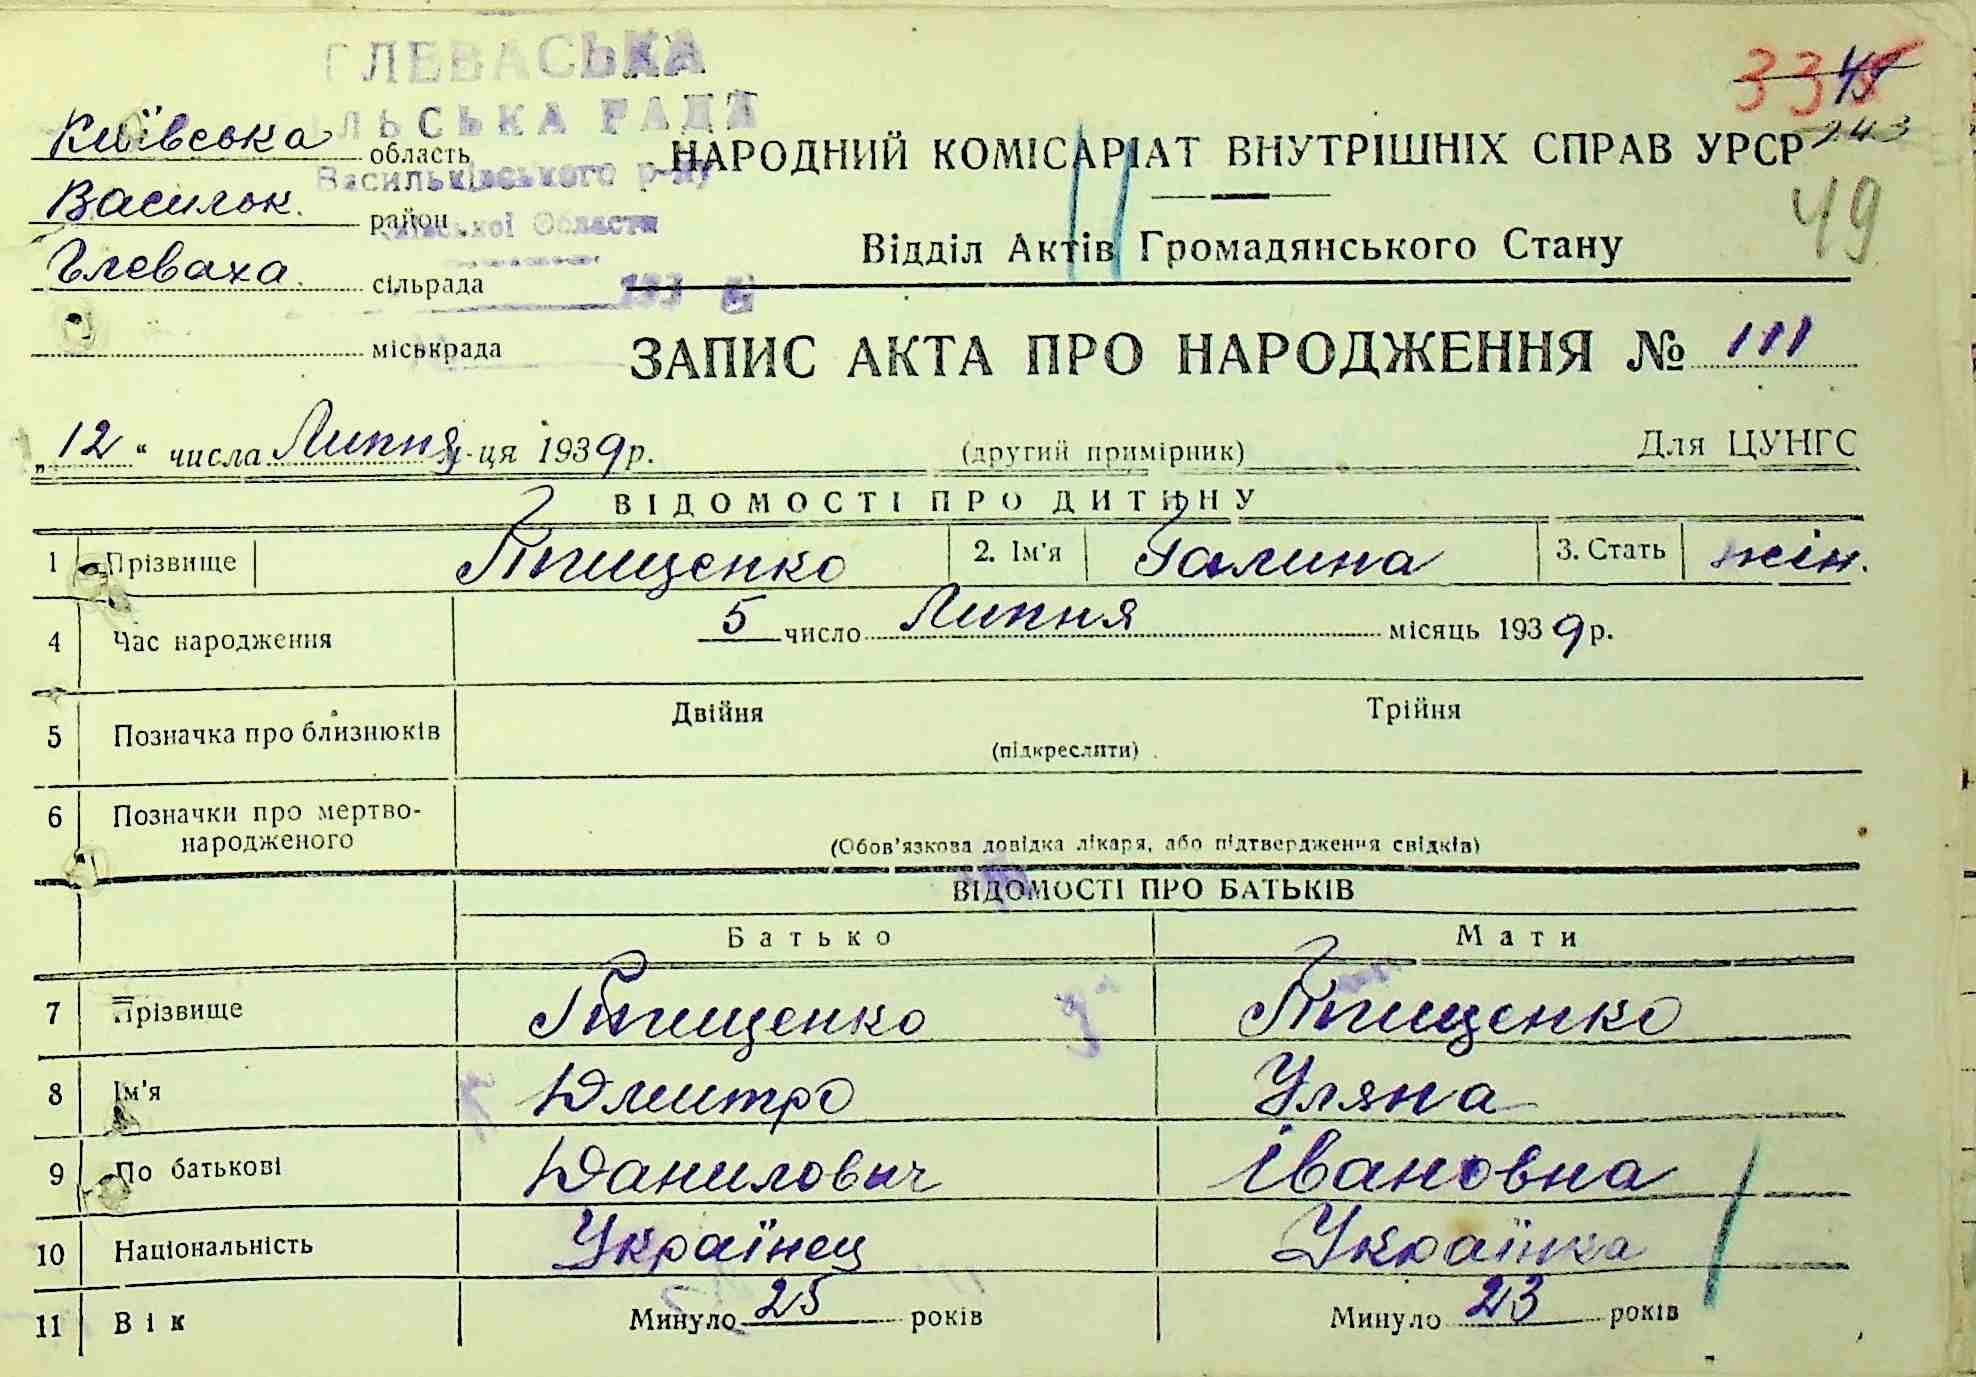 ГЛЕВАСЬКА
СІЛЬСЬКА РАДА
Васильківського р-ну
Київської Области
193
Київська область
Васильк. район
Глеваха сільрада
міськрада
33
45
243
49
НАРОДНИЙ КОМІСАРІАТ ВНУТРІШНІХ СПРАВ УРСР
Відділ Актів Громадянського Стану
ЗАПИС АКТА ПРО НАРОДЖЕННЯ № 111
„12“ числа Липня м-ця 1939 р. (другий примірник) Для ЦУНГС
ВІДОМОСТІ ПРО ДИТИНУ
1 Прізвище Тищенко 2. Ім'я Галина 3. Стать жін.
4 Час народження 5 число Липня місяць 1939 р.
5 Позначка про близнюків Двійня Трійня
(підкреслити)
6 Позначки про мертво-
народженого
(Обов'язкова довідка лікаря, або підтвердження свідків)
ВІДОМОСТІ ПРО БАТЬКІВ
Батько Мати
7 Прізвище Тищенко Тищенко
8 Ім'я Дмитро Уляна
9 По батькові Данилович Івановна
10 Національність Українец Українка
11 Вік Минуло 25 років Минуло 23 років